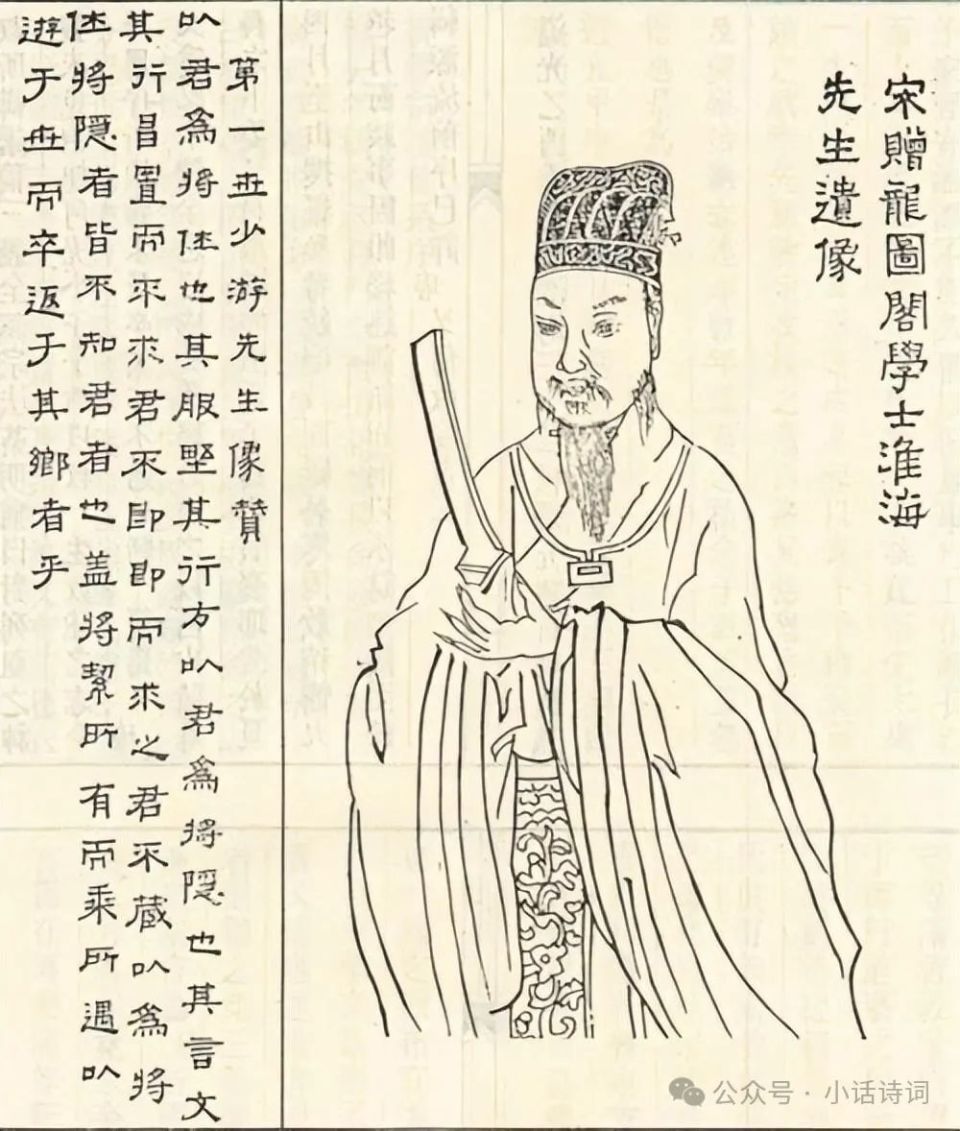 宋贈龍圖閣學士淮海
先生遺像
第一世少游先生像贊
以君爲將仕也其服野其行方以君爲將隱也其言文
其行昌置而不求君不即即而求之君不藏以爲將
仕將隱者皆不知君者也盖將絜所有而乘所遇以
遊于世而卒返于其鄉者乎
公众号·小话诗词